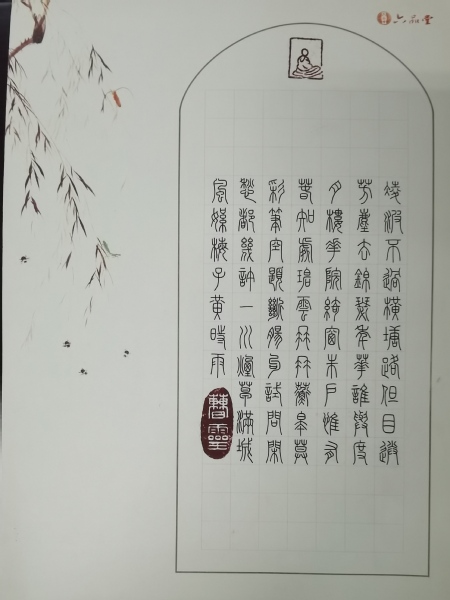 六品堂
凌波不過橫塘路但目送
芳塵去錦瑟年華誰與度
月樓花院綺窗朱戶惟有
春知處碧雲冉冉蘅皋暮
彩筆空題斷腸句試問閑
愁都幾許一川煙草滿城
風絮梅子黃時雨